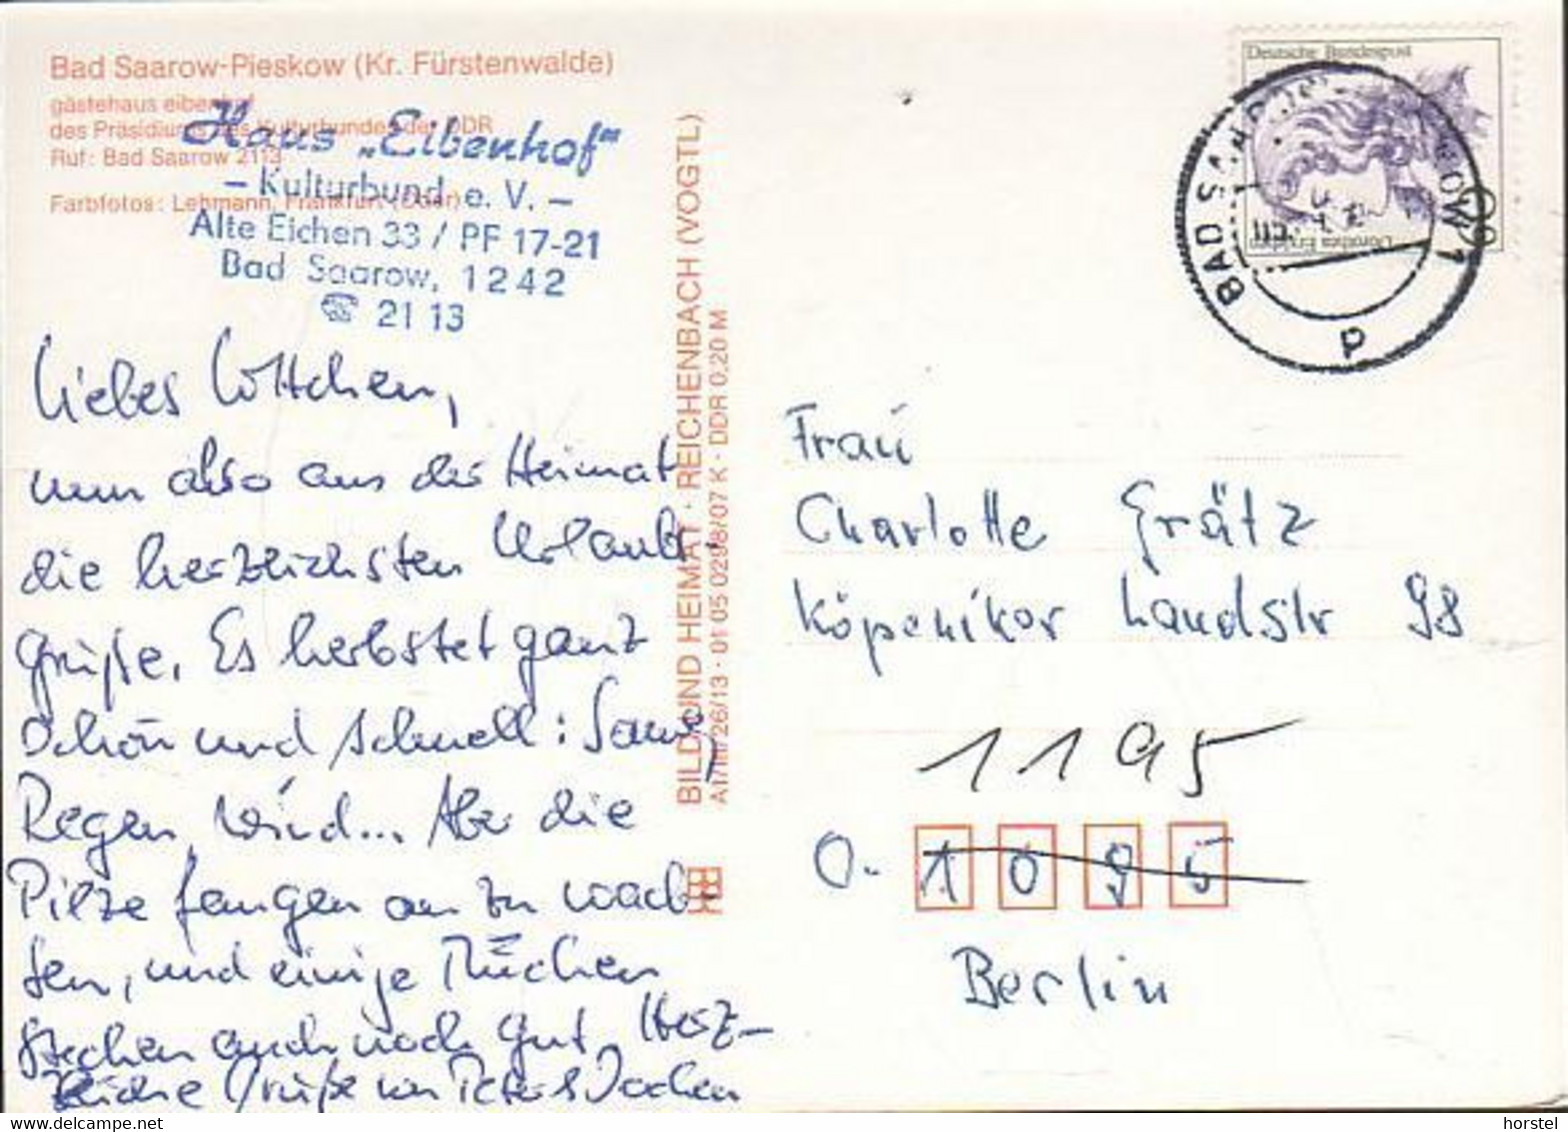 Bad Saarow-Pieskow (Kr. Fürstenwalde)
gästehaus eibenhof
des Präsidiums des Kulturbundes der DDR
Ruf: Bad Saarow 2113
Farbfotos: Lehmann, Frankfurt (Oder)
Haus „Eibenhof"
– Kulturbund e. V. –
Alte Eichen 33 / PF 17-21
Bad Saarow, 1242
☏ 21 13
Liebes Lottchen,
nun also aus der Heimat
die herzlichsten Urlaubs-
grüße. Es herbstet ganz
schön und schnell: Sonne,
Regen, Wind... Aber die
Pilze fangen an zu wach-
sen, und einige Mücken
stechen auch noch gut. Herz-
liche Grüße von Peter & Jochen
BILD UND HEIMAT · REICHENBACH (VOGTL)
A1/III/26/13 · 01 05 0298/07 K · DDR 0,20 M
Deutsche Bundespost
Dorothea Erxleben
BAD SAAROW 1
p
Frau
Charlotte Grätz
Köpeniker Landstr 98
1195
O- 1095
Berlin
www.delcampe.net
horstel